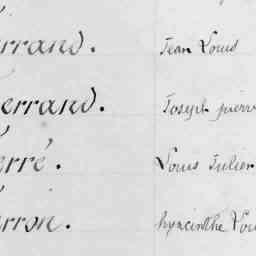 errand. Jean Louis
errand. Joseph pierre
erré. Louis Julien
erron. hyacinthe Lou